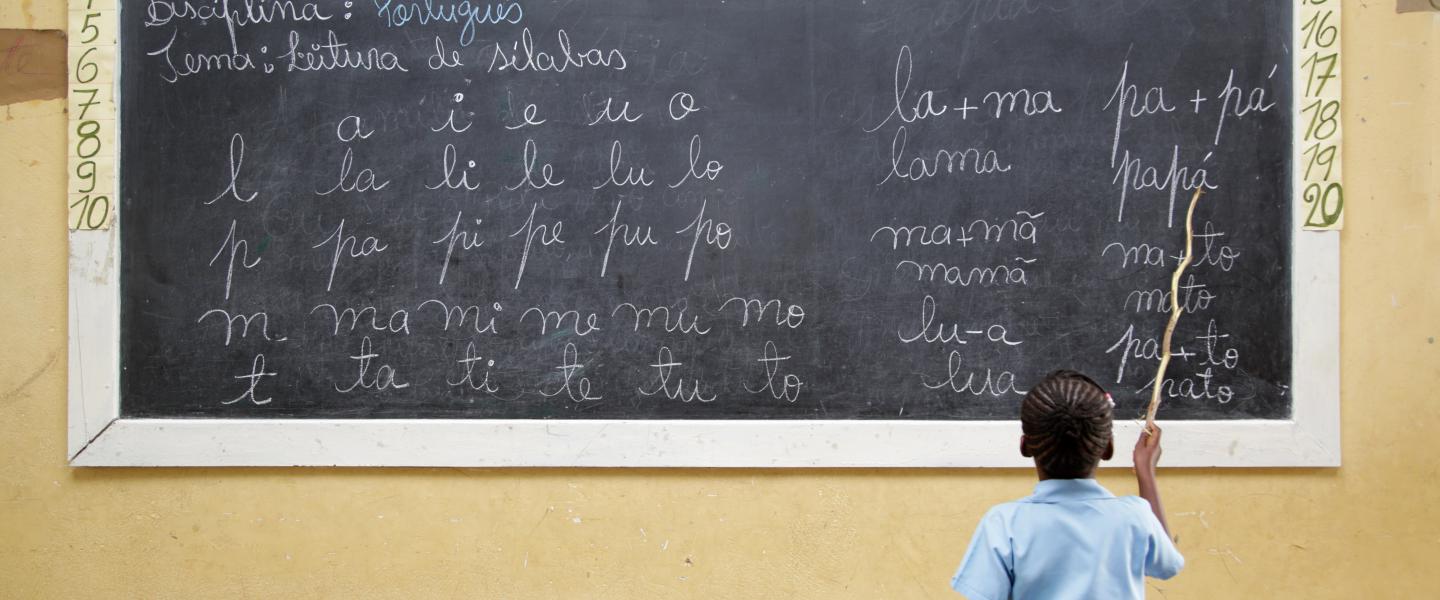 5
6
7
8
9
10
Disciplina: Português
Tema: Leitura de sílabas
a i e u o
l la li le lu lo
p pa pi pe pu po
m ma mi me mu mo
t ta ti te tu to
la + ma
lama
ma + mã
mamã
lu - a
lua
pa + pá
papá
ma + to
mato
pa + to
pato
16
17
18
19
20